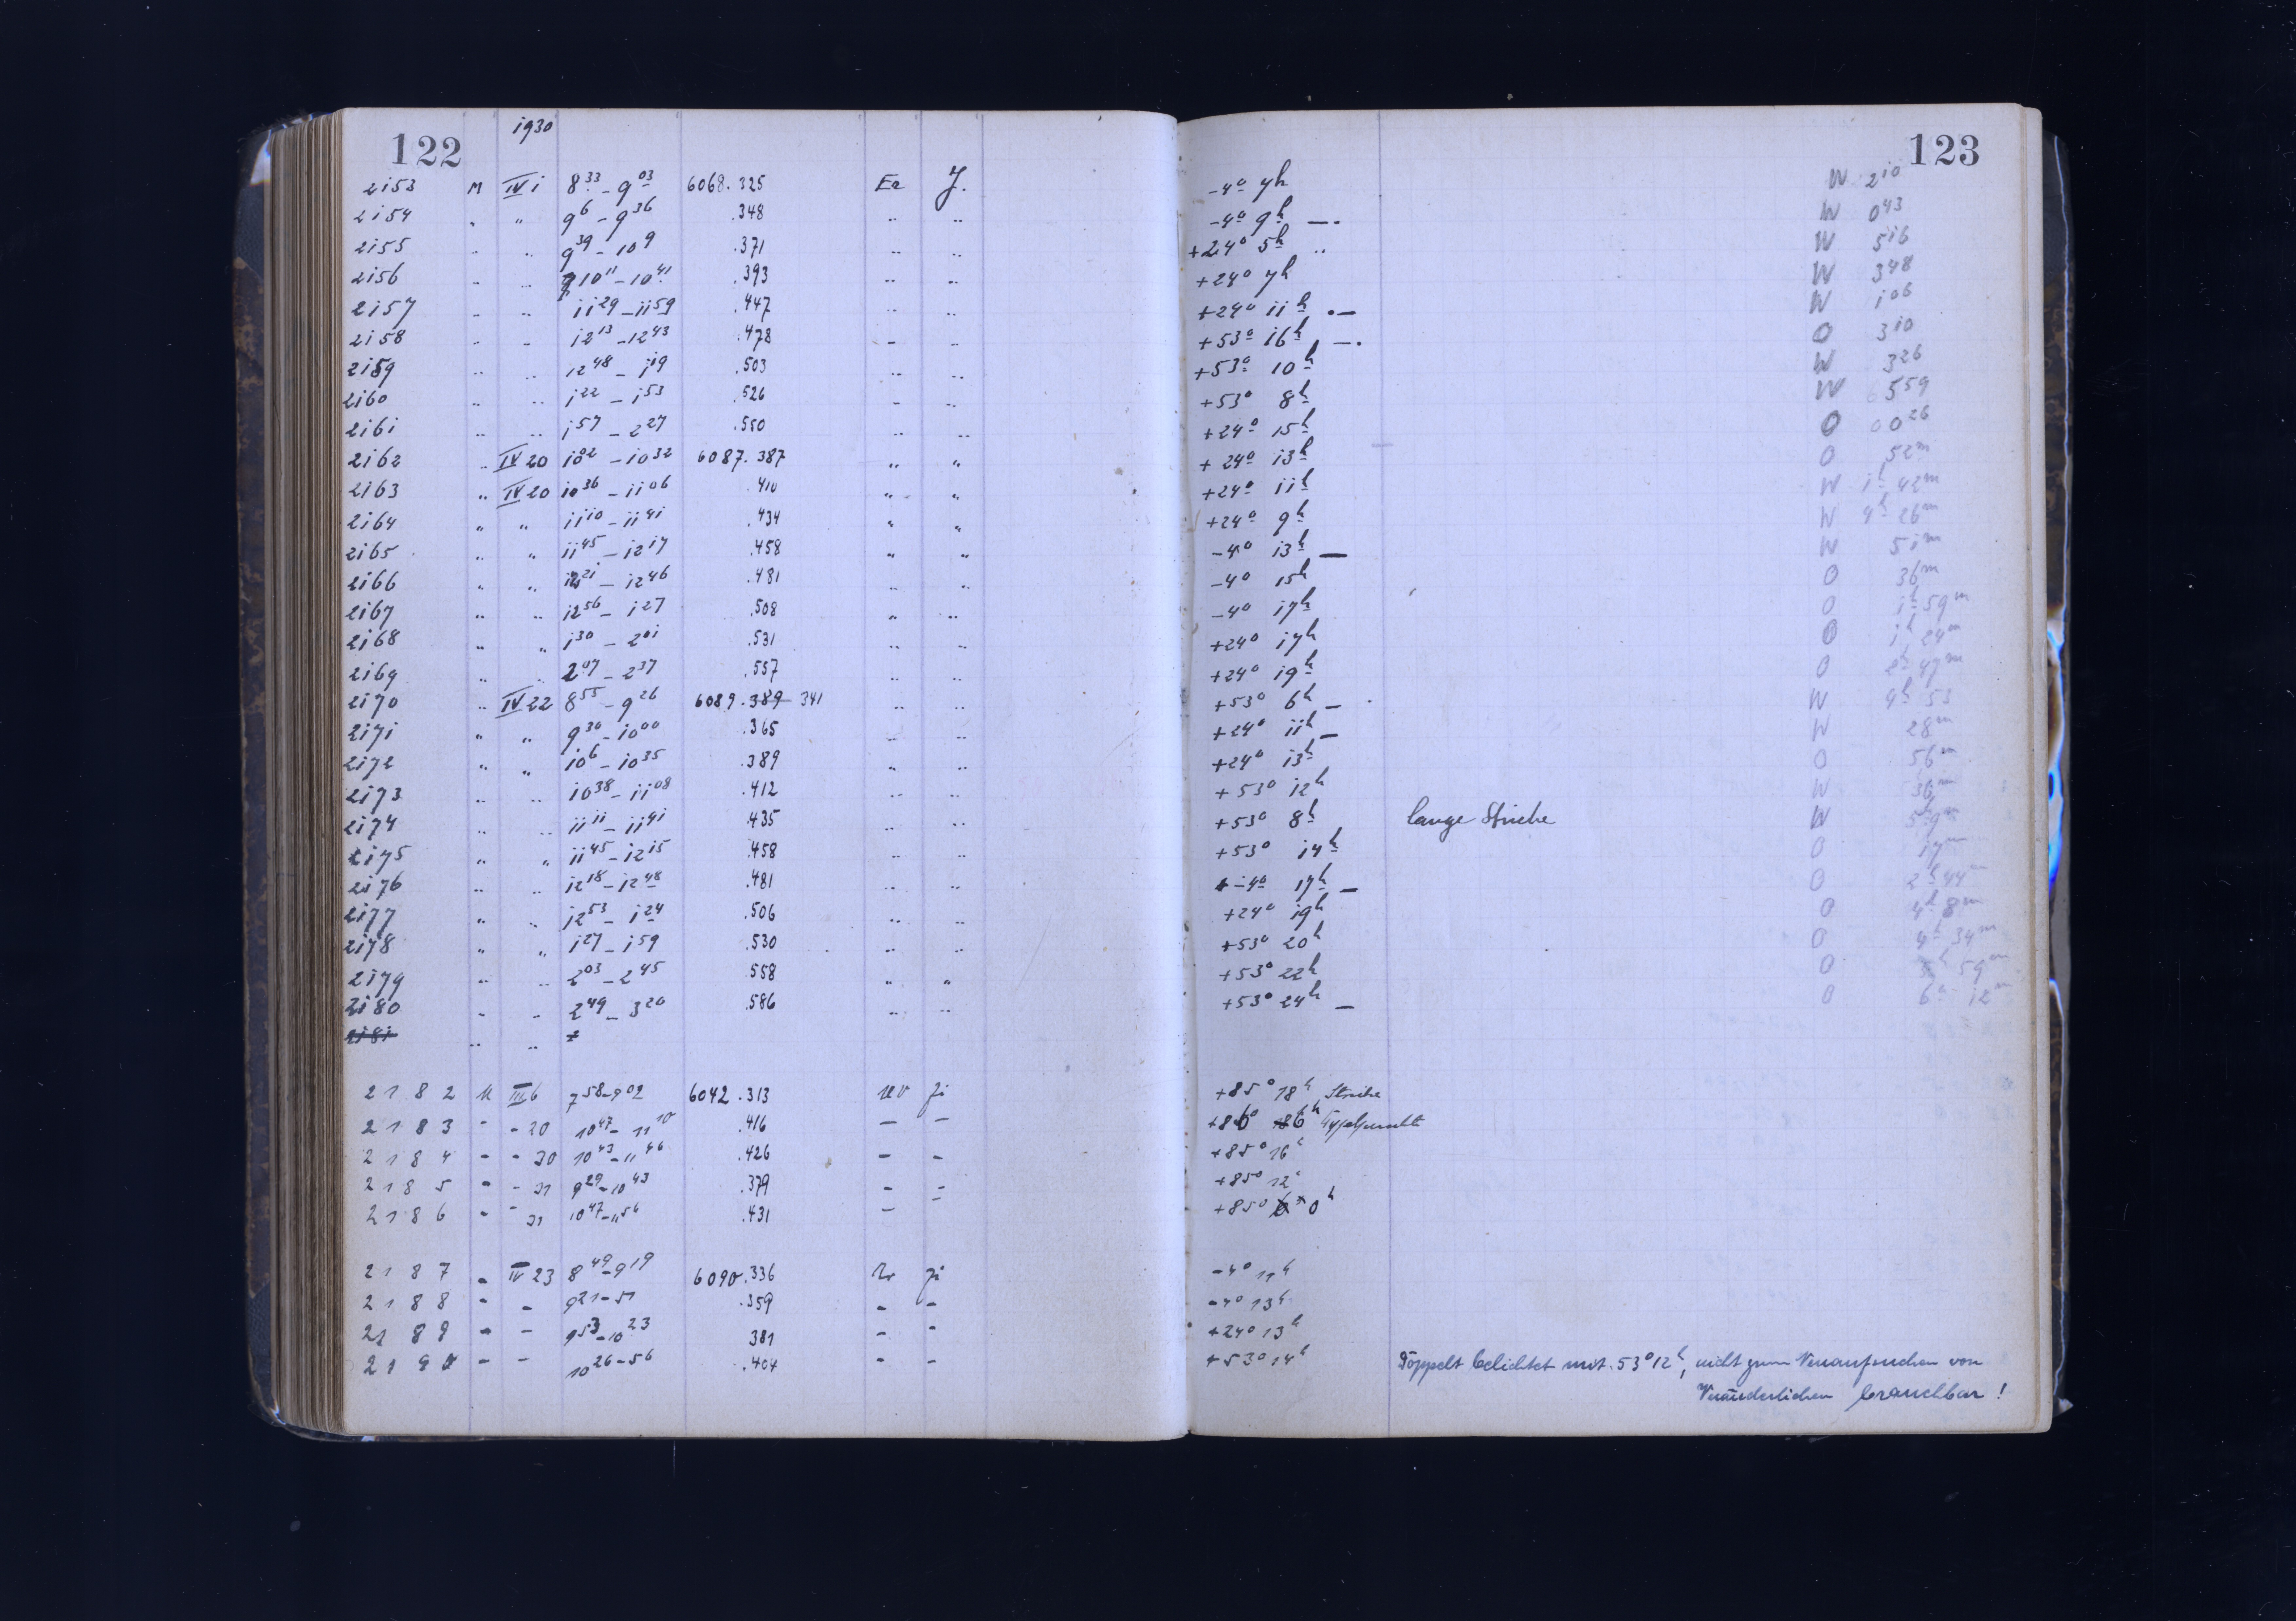 122 1930 123
2153 M IV 1 8 33 - 9 03 6068.325 Er J. -4° 7h W 2 10
2154 " " 9 6 - 9 36 .348 " " -4° 9h —. W 0 43
2155 " " 9 39 - 10 9 .371 " " +24° 5h " W 5 16
2156 " " 10 11 - 10 41 .393 " " +24° 7h W 3 48
2157 " " 11 29 - 11 59 .447 " " +24° 11h .— W 1 06
2158 " " 12 13 - 12 43 .478 " " +53° 16h —. O 3 10
2159 " " 12 48 - 1 19 .503 " " +53° 10h W 3 26
2160 " " 1 22 - 1 53 .526 " " +53° 8h W 5 59
2161 " " 1 57 - 2 27 .550 " " +24° 15h O 0 26
2162 " IV 20 10 02 - 10 32 6087.387 " " +24° 13h O 52m
2163 " IV 20 10 36 - 11 06 .410 " " +24° 11h W 1h 42m
2164 " " 11 10 - 11 41 .434 " " +24° 9h W 4h 26m
2165 " " 11 45 - 12 17 .458 " " -4° 13h — W 51m
2166 " " 12 21 - 12 46 .481 " " -4° 15h O 36m
2167 " " 12 56 - 1 27 .508 " " -4° 17h O 1h 59m
2168 " " 1 30 - 2 01 .531 " " +24° 17h O 1h 24m
2169 " " 2 07 - 2 37 .557 " " +24° 19h O 2h 47m
2170 " IV 22 8 55 - 9 26 6089.389 341 " " +53° 6h — W 4h 53
2171 " " 9 30 - 10 00 .365 " " +24° 11h — W 28m
2172 " " 10 6 - 10 35 .389 " " +24° 13h O 56m
2173 " " 10 38 - 11 08 .412 " " +53° 12h W 36m
2174 " " 11 11 - 11 41 .435 " " +53° 8h lange Striche W
2175 " " 11 45 - 12 15 .458 " " +53° 14h O 17m
2176 " " 12 18 - 12 48 .481 " " -4° 17h — O 2h 44m
2177 " " 12 53 - 1 24 .506 " " +24° 19h O 4h 8m
2178 " " 1 27 - 1 59 .530 " " +53° 20h O 4h 34m
2179 " " 2 03 - 2 45 .558 " " +53° 22h O 59m
2180 " " 2 49 - 3 20 .586 " " +53° 24h — O 6h 12m
2181 " "
2182 M III 6 7 58 - 9 02 6042.313 UV Ji +85° 18h Striche
2183 - - 20 10 47 - 11 10 .416 - - +86° 6h
2184 - - 30 10 43 - 11 46 .426 - - +85° 16h
2185 - - 31 9 29 - 10 43 .379 - - +85° 12h
2186 - - 31 10 47 - 11 56 .431 - - +85° 0h
2187 - IV 23 8 49 - 9 19 6090.336 Ji -4° 11h
2188 - - 9 21 - 51 .359 - - -4° 13h
2189 - - 9 53 - 10 23 381 - - +24° 13h
2190 - - 10 26 - 56 .404 - - +53° 14h Doppelt belichtet mit 53° 12h, nicht zum Neuaufsuchen von
Veränderlichen brauchbar!